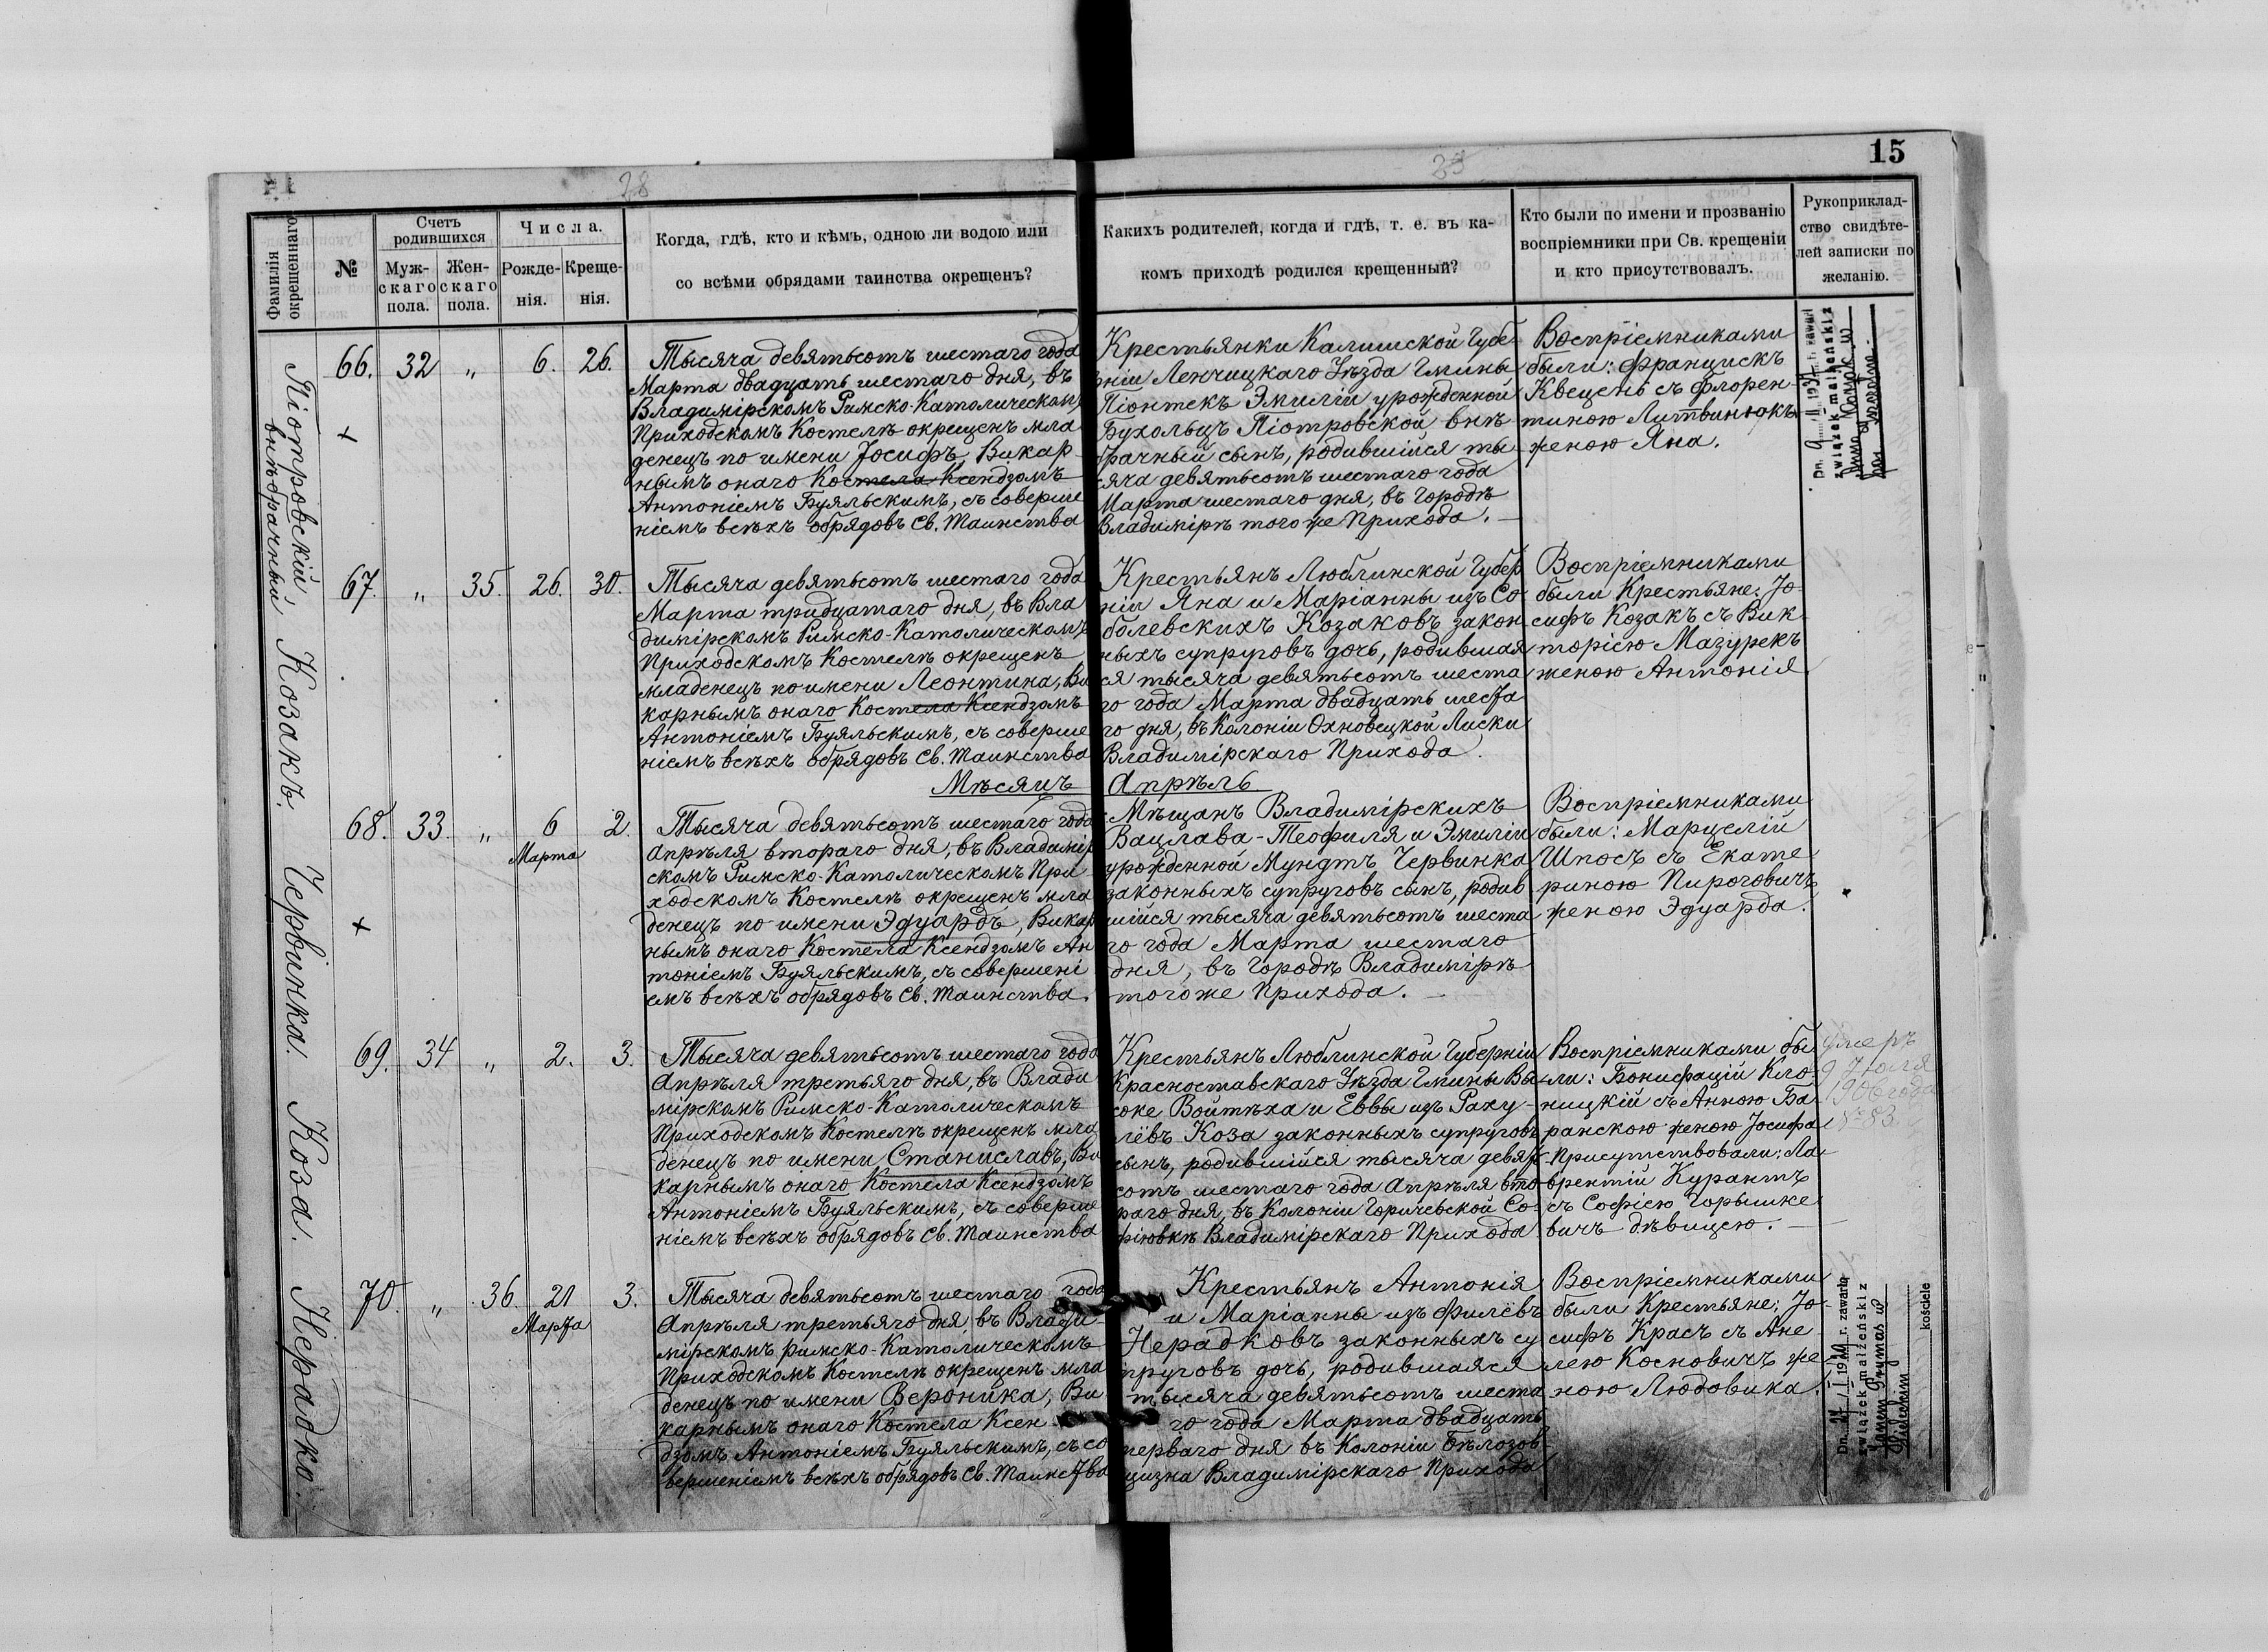 28
29
15
Фамилія окрещеннаго
№
Счетъ родившихся
Муж-скаго пола.
Жен-скаго пола.
Числа.
Рожде-нія.
Креще-нія.
Когда, гдѣ, кто и кѣмъ, одною ли водою или
со всѣми обрядами таинства окрещенъ?
Какихъ родителей, когда и гдѣ, т. е. въ ка-
комъ приходѣ родился крещенный?
Кто были по имени и прозванію
воспріемники при Св. крещеніи
и кто присутствовалъ.
Рукоприклад-
ство свидѣте-
лей записки по
желанію.
Піотровскій
внѣбрачный
66. 32 " 6. 26.
Тысяча девятьсотъ шестаго года
Марта двадцать шестаго дня, въ
Владимірскомъ Римско-Католическомъ
Приходскомъ Костелѣ окрещенъ мла
денецъ по имени Іосифъ, Викар-
нымъ онаго Костела Ксендзомъ
Антоніемъ Буяльскимъ, съ соверше
ніемъ всѣхъ обрядовъ Св. Таинства
Крестьянки Калишской Губе
рніи Ленчицкаго Уѣзда Гмины
Піонтекъ Эмиліи урожденной
Бухольцъ Піотровской внѣ
брачный сынъ, родившійся ты
сяча девятьсотъ шестаго года
Марта шестаго дня, въ Городѣ
Владимірѣ того же Прихода.
Воспріемниками
были: Францискъ
Квецень съ Флорен-
тиною Литвинюкъ
женою Яна.
Dn. 9 II 1931 r. zawarł
związek małżeński z
67. " 35. 26. 30.
Козакъ.
Тысяча девятьсотъ шестаго года
Марта тридцатаго дня, въ Вла
димірскомъ Римско-Католическомъ
Приходскомъ Костелѣ окрещенъ
младенецъ по имени Леонтина, Ви
карнымъ онаго Костела Ксендзомъ
Антоніемъ Буяльскимъ, съ соверше
ніемъ всѣхъ обрядовъ Св. Таинства
Крестьянъ Люблинской Губер
ніи Яна и Маріанны изъ Со
болевскихъ Козаковъ закон
ныхъ супруговъ дочь, родившая
ся тысяча девятьсотъ шеста
го года Марта двадцать шеста
го дня, въ Колоніи Охновецкой Лиски
Владимірскаго Прихода.
Воспріемниками
были Крестьяне: Іо-
сифъ Козакъ съ Вик-
торіею Мазурекъ
женою Антонія
Мѣсяцъ Апрѣль
68. 33. " 6 Марта 2.
Червинка.
Тысяча девятьсотъ шестаго года
Апрѣля втораго дня, въ Владимір
скомъ Римско-Католическомъ При
ходскомъ Костелѣ окрещенъ мла
денецъ по имени Эдуардъ, Викар
нымъ онаго Костела Ксендзомъ Ан
тоніемъ Буяльскимъ, съ совершені
емъ всѣхъ обрядовъ Св. Таинства.
Мѣщанъ Владимірскихъ
Вацлава-Теофиля и Эмиліи
урожденной Мундтъ Червинка
законныхъ супруговъ сынъ, родив
шійся тысяча девятьсотъ шеста
го года Марта шестаго
дня, въ Городѣ Владимірѣ
того же Прихода.
Воспріемниками
были: Марцелій
Шпосъ съ Екате
риною Пироговичъ
женою Эдуарда.
69. 34 " 2. 3.
Коза.
Тысяча девятьсотъ шестаго года
Апрѣля третьяго дня, въ Влади
мірскомъ Римско-Католическомъ
Приходскомъ Костелѣ окрещенъ мла
денецъ по имени Станиславъ, Ви
карнымъ онаго Костела Ксендзомъ
Антоніемъ Буяльскимъ, съ соверше
ніемъ всѣхъ обрядовъ Св. Таинства
Крестьянъ Люблинской Губерніи
Красноставскаго Уѣзда Гмины Вы-
соке Войтѣха и Еввы изъ Раху-
лёвъ Коза законныхъ супруговъ
сынъ, родившійся тысяча девять
сотъ шестаго года Апрѣля вто
раго дня, въ Колоніи Горичевской Со
фіювкѣ Владимірскаго Прихода
Воспріемниками бы
ли: Бонифацій Кло-
ницкій съ Анною Ба-
ранскою женою Іосифа
Присутствовали: Ла-
врентій Курантъ
съ Софіею Горышке
вичъ дѣвицею.
Умеръ
9 Іюля
1906 года
№ 83
70. " 36. 21 Марта 3.
Нерадко.
Тысяча девятьсотъ шестаго года
Апрѣля третьяго дня, въ Влади-
мірскомъ римско-Католическомъ
Приходскомъ Костелѣ окрещенъ мла
денецъ по имени Вероника, Ви
карнымъ онаго Костела Ксен-
дзомъ Антоніемъ Буяльскимъ, съ со
вершеніемъ всѣхъ обрядовъ Св. Таинства
Крестьянъ Антонія
и Маріанны изъ Филёвъ
Нерадковъ законныхъ су
пруговъ дочь, родившаяся
тысяча девятьсотъ шеста
го года Марта двадцать
перваго дня въ Колоніи Бѣлозов-
щизна Владимірскаго Прихода
Воспріемниками
были Крестьяне: Іо-
сифъ Красъ съ Ане
лею Косновичъ же
ною Людовика.
r. zawarła
związek małżeński z
Janem Prymas w
kościele